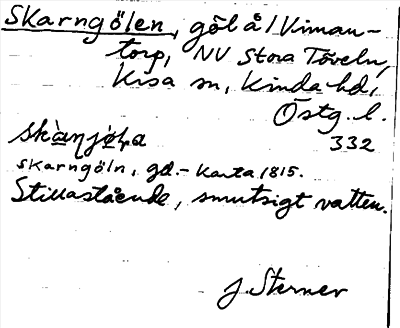 Skarngölen, göl å/Viman-
torp, NV Stora Töveln,
Kisa sn, Kinda hd,
Östg. l.
332
Skarngöln, gd.- Karta 1815.
Stillastående, smutsigt vatten.
J. Sterner